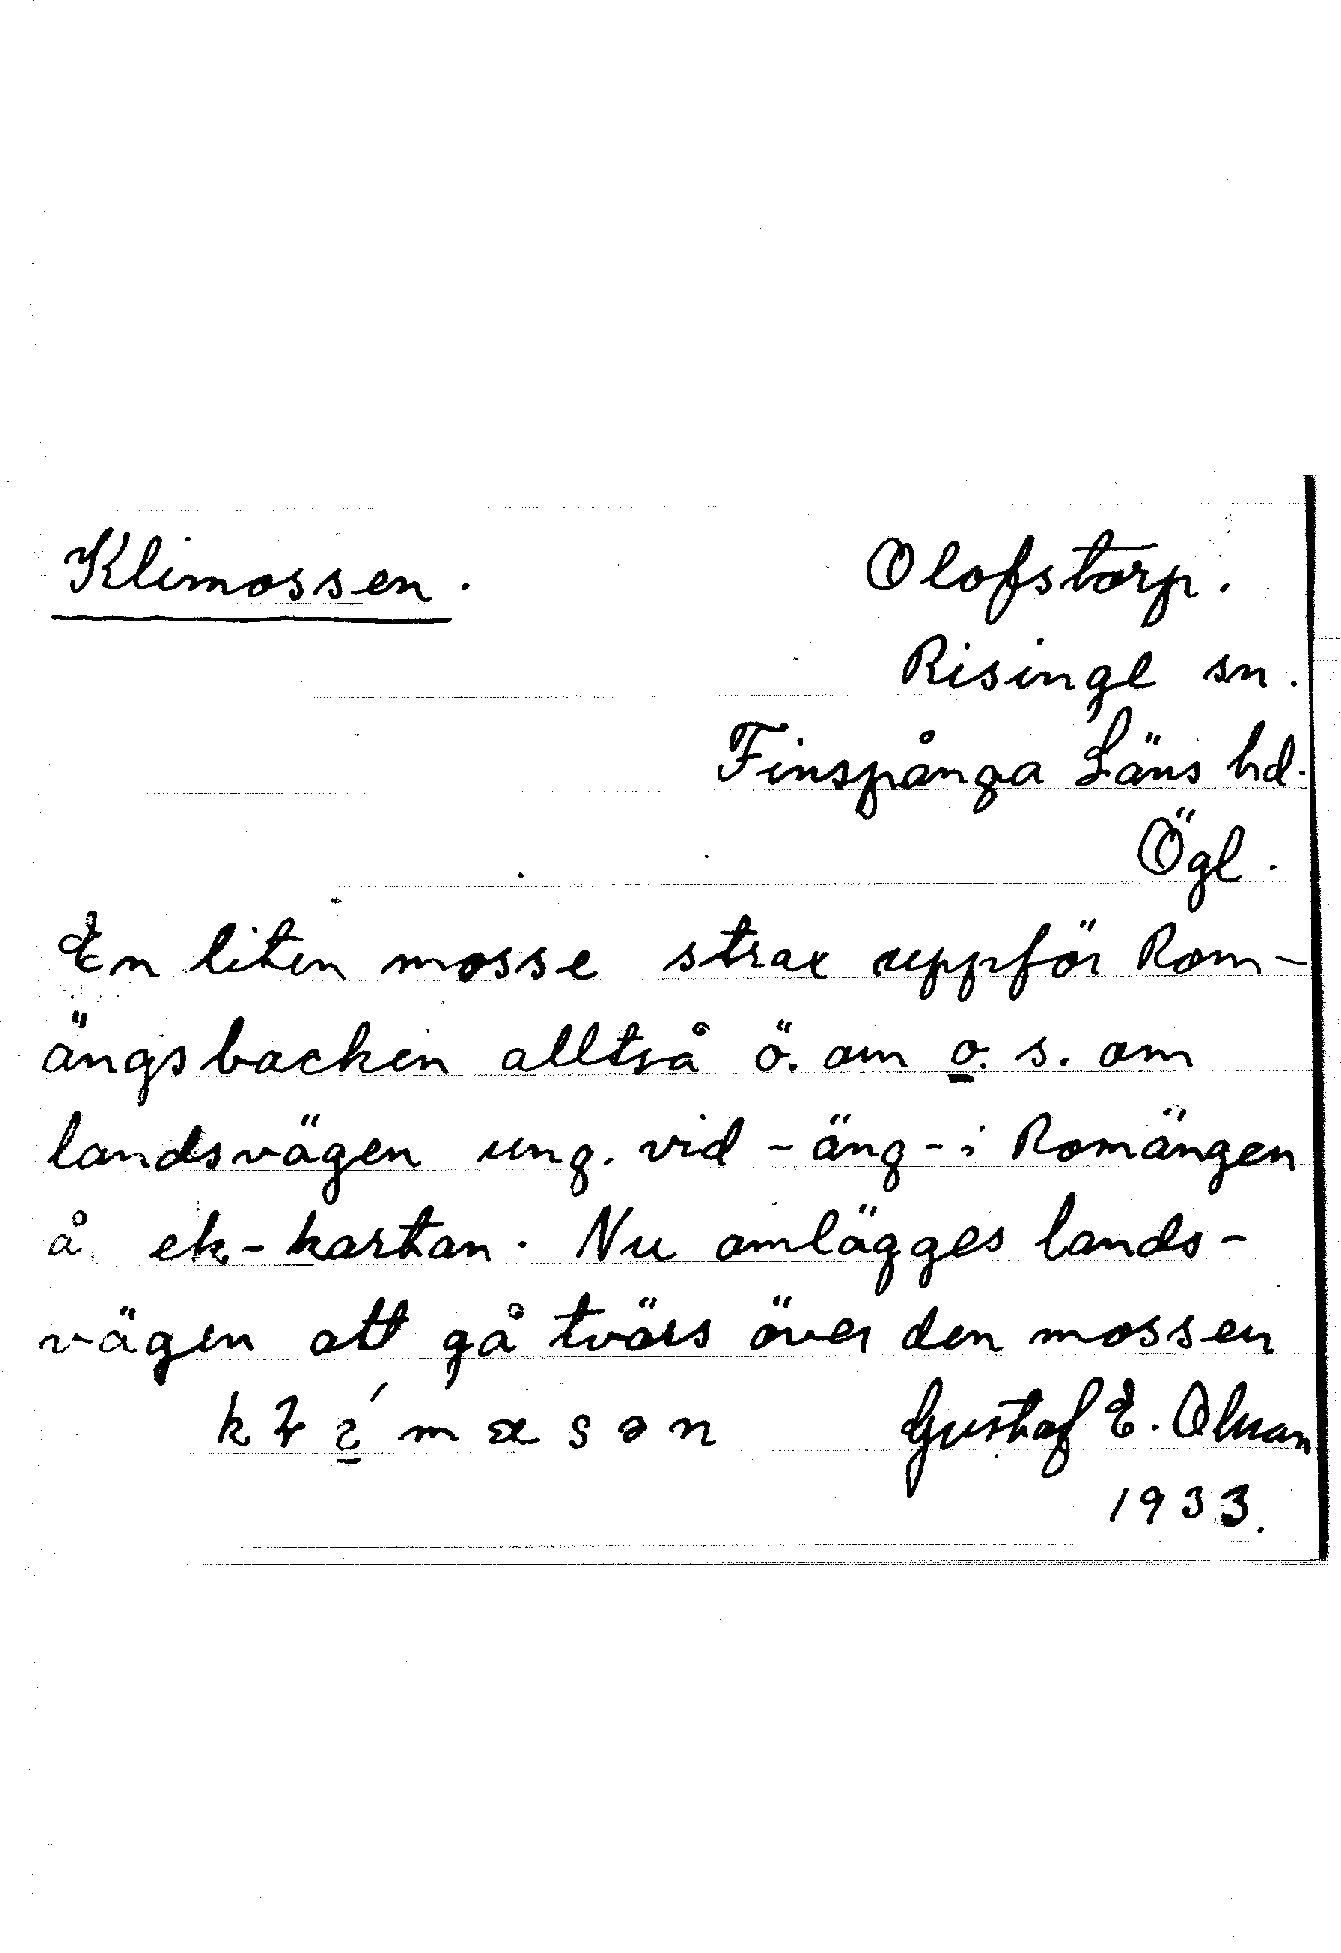 Klimossen. Olofstorp.
Risinge sn.
Finspånga Läns hd.
Ögl.
En liten mosse strax uppför Rom-
ängsbacken alltså ö. om o. s. om
landsvägen ung. vid -äng- i Romängen
å ek-kartan. Nu omlägges lands-
vägen att gå tvärs över den mossen
Gustaf E. Olsson
1933.